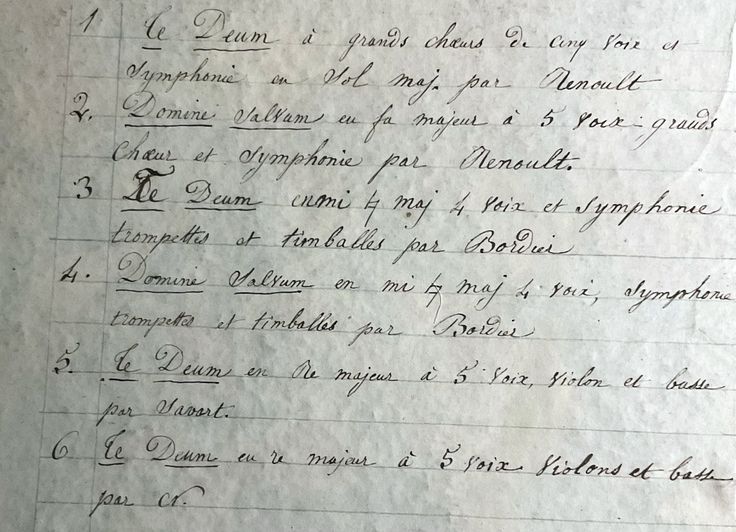 1 Te Deum à grands chœurs de cinq voix et
Symphonie en Sol maj. par Renoult
2. Domine Salvum en fa majeur à 5 voix grands
Chœur et Symphonie par Renoult.
3 Te Deum en mi ♮ maj 4 voix et Symphonie
trompettes et timballes par Bordier
4. Domine Salvum en mi ♮ maj 4 voix, Symphonie
trompettes et timballes par Bordier
5. Te Deum en Re majeur à 5 voix, violon et basse
par Savart.
6 Te Deum en re majeur à 5 voix Violons et basse
par N.